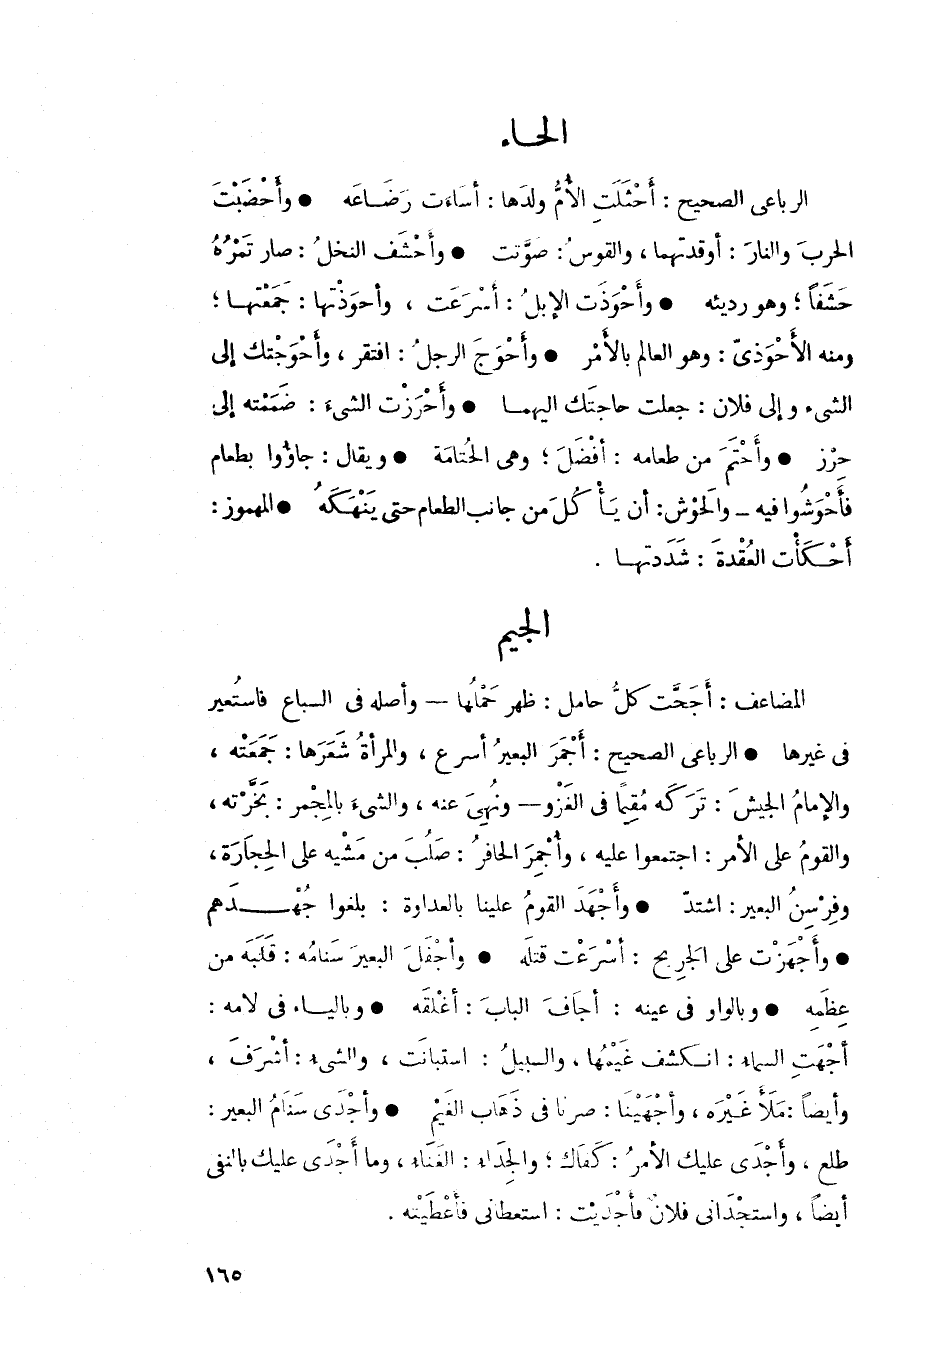 الحاء
الرباعى الصحيح : أَحْثَلَتِ الأُمُّ ولدَها : أساءت رَضَاعَه ● وأَحْضَبْتَ
الحربَ والنارَ : أوقدتهما ، والقوسُ : صَوَّنت ● وأَحْشَف النخلُ : صار تَمْرُهُ
حَشَفاً ؛ وهو رديئه ● وأَحْوَذَت الإبلُ : أسْرَعَت ، وأحوَذْتها : جَمَعْتها ؛
ومنه الأَحْوَذىّ : وهو العالم بالأَمْر ● وأَحْوَجَ الرجلُ : افتقر ، وأَحْوَجْتك إلى
الشىء وإلى فلان : جعلت حاجتَك اليهما ● وأَحْرَزْت الشىءَ : ضَمَمْته إلى
حِرْز ● وأَحْتَمَ من طعامه : أفْضَلَ ؛ وهى الحُتامَة ● ويقال : جاؤوا بطعام
فأَحْوَشُوا فيه – والَحوْش : أن يَأْكُلَ من جانب الطعام حتى يَنْهَكَهُ ● المهموز :
أَحْكَأْت العُقْدةَ : شَدَدتها .
الجيم
المضاعف : أَجَحَّت كلُّ حامل : ظهر حَمْلُها — وأصله فى السباع فاستُعير
فى غيرها ● الرباعى الصحيح : أَجْمَرَ البعيرُ أسرع ، والمرأةُ شَعَرَها : جَمَعَتْه ،
والإمامُ الجيشَ : تَرَكه مُقِيماً فى الغَزْو — ونُهِىَ عنه ، والشىءَ بالمِجْمر : بَخَّرْته ،
والقومُ على الأمر : اجتمعوا عليه ، وأُجْمِرَ الحافرُ : صَلُبَ من مَشْيه على الحِجارَة ،
وفِرْسِنُ البعير : اشتدّ ● وأَجْهَدَ القومُ علينا بالعداوة : بلغوا جُهْدَهم
● وأَجْهَزْت على الجَرِيح : أسْرَعْت قتلَه ● وأجْفَلَ البعيرَ سَنامُه : قَلَبَه من
عِظَمِه ● وبالواو فى عينه : أجافَ البابَ : أغْلَقه ● وبالياء فى لامه :
أجْهَتِ السماء : انكشف غَيْمُها ، والسبيلُ : استبانَت ، والشىء : أشْرَفَ ،
وأيضاً : مَلَأَ غَيْرَه ، وأجْهَيْنَا : صرنا فى ذَهَاب الغَيْم ● وأجْدَى سَنَامُ البعير :
طلع ، وأَجْدَى عليك الأمرُ : كَفَاك ؛ والجَدَاء : الغَنَاء ، وما أَجْدَى عليك بالنفى
أيضاً ، واستجْدَانى فلانٌ فأجْدَيْت : استعطانى فأعْطَيْته .
١٦٥